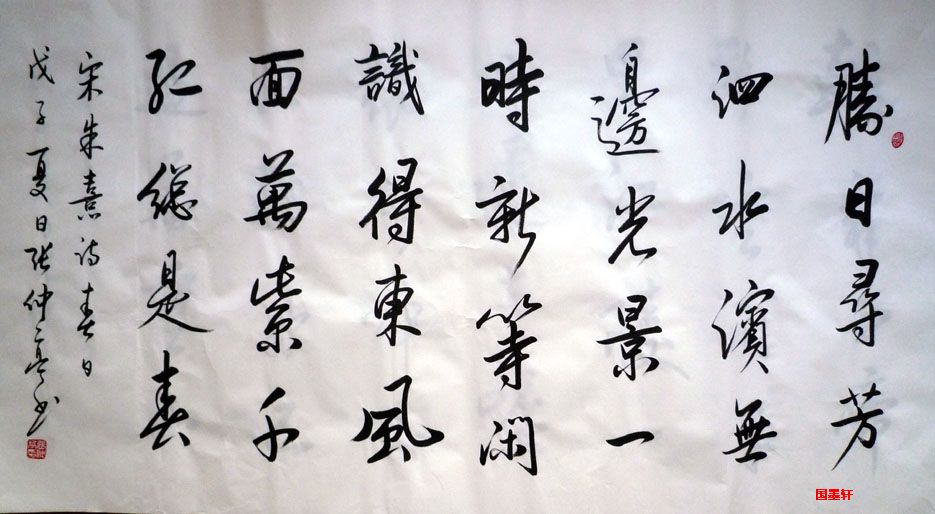 勝日尋芳
泗水濱無
邊光景一
時新等閑
識得東風
面萬紫千
紅總是春
宋朱熹诗春日
戊子夏日张仲亭书
国墨轩